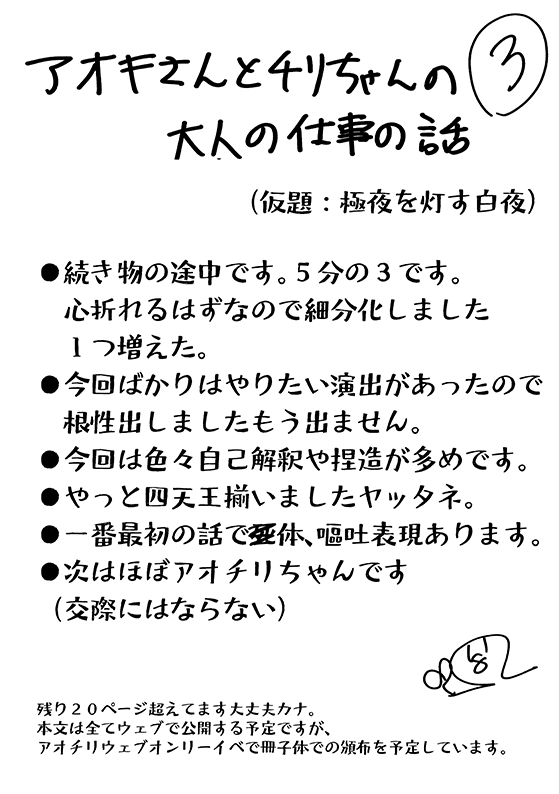 アオキさんとチリちゃんの③
大人の仕事の話
(仮題：極夜を灯す白夜)
●続き物の途中です。５分の３です。
心折れるはずなので細分化しました
１つ増えた。
●今回ばかりはやりたい演出があったので
根性出しましたもう出ません。
●今回は色々自己解釈や捏造が多めです。
●やっと四天王揃いましたヤッタネ。
●一番最初の話で死体、嘔吐表現あります。
●次はほぼアオチリちゃんです
(交際にはならない)
残り２０ページ超えてます大丈夫カナ。
本文は全てウェブで公開する予定ですが、
アオチリウェブオンリーイベで冊子体での頒布を予定しています。